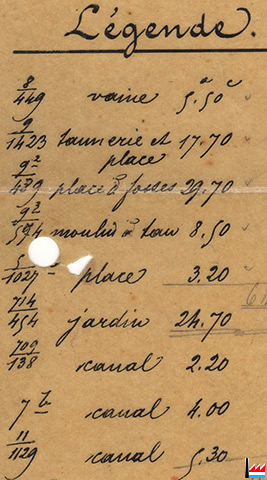 Légende.
8/449 vaine 5.50
9/1423 tannerie et place 17.70
9²/439 place à fosses 29.70
9³/594 moulin à tan 8.50
5/1027 place 3.20
714/454 jardin 24.70
709/138 canal 2.20
7 b canal 4.00
11/1129 canal 5.30